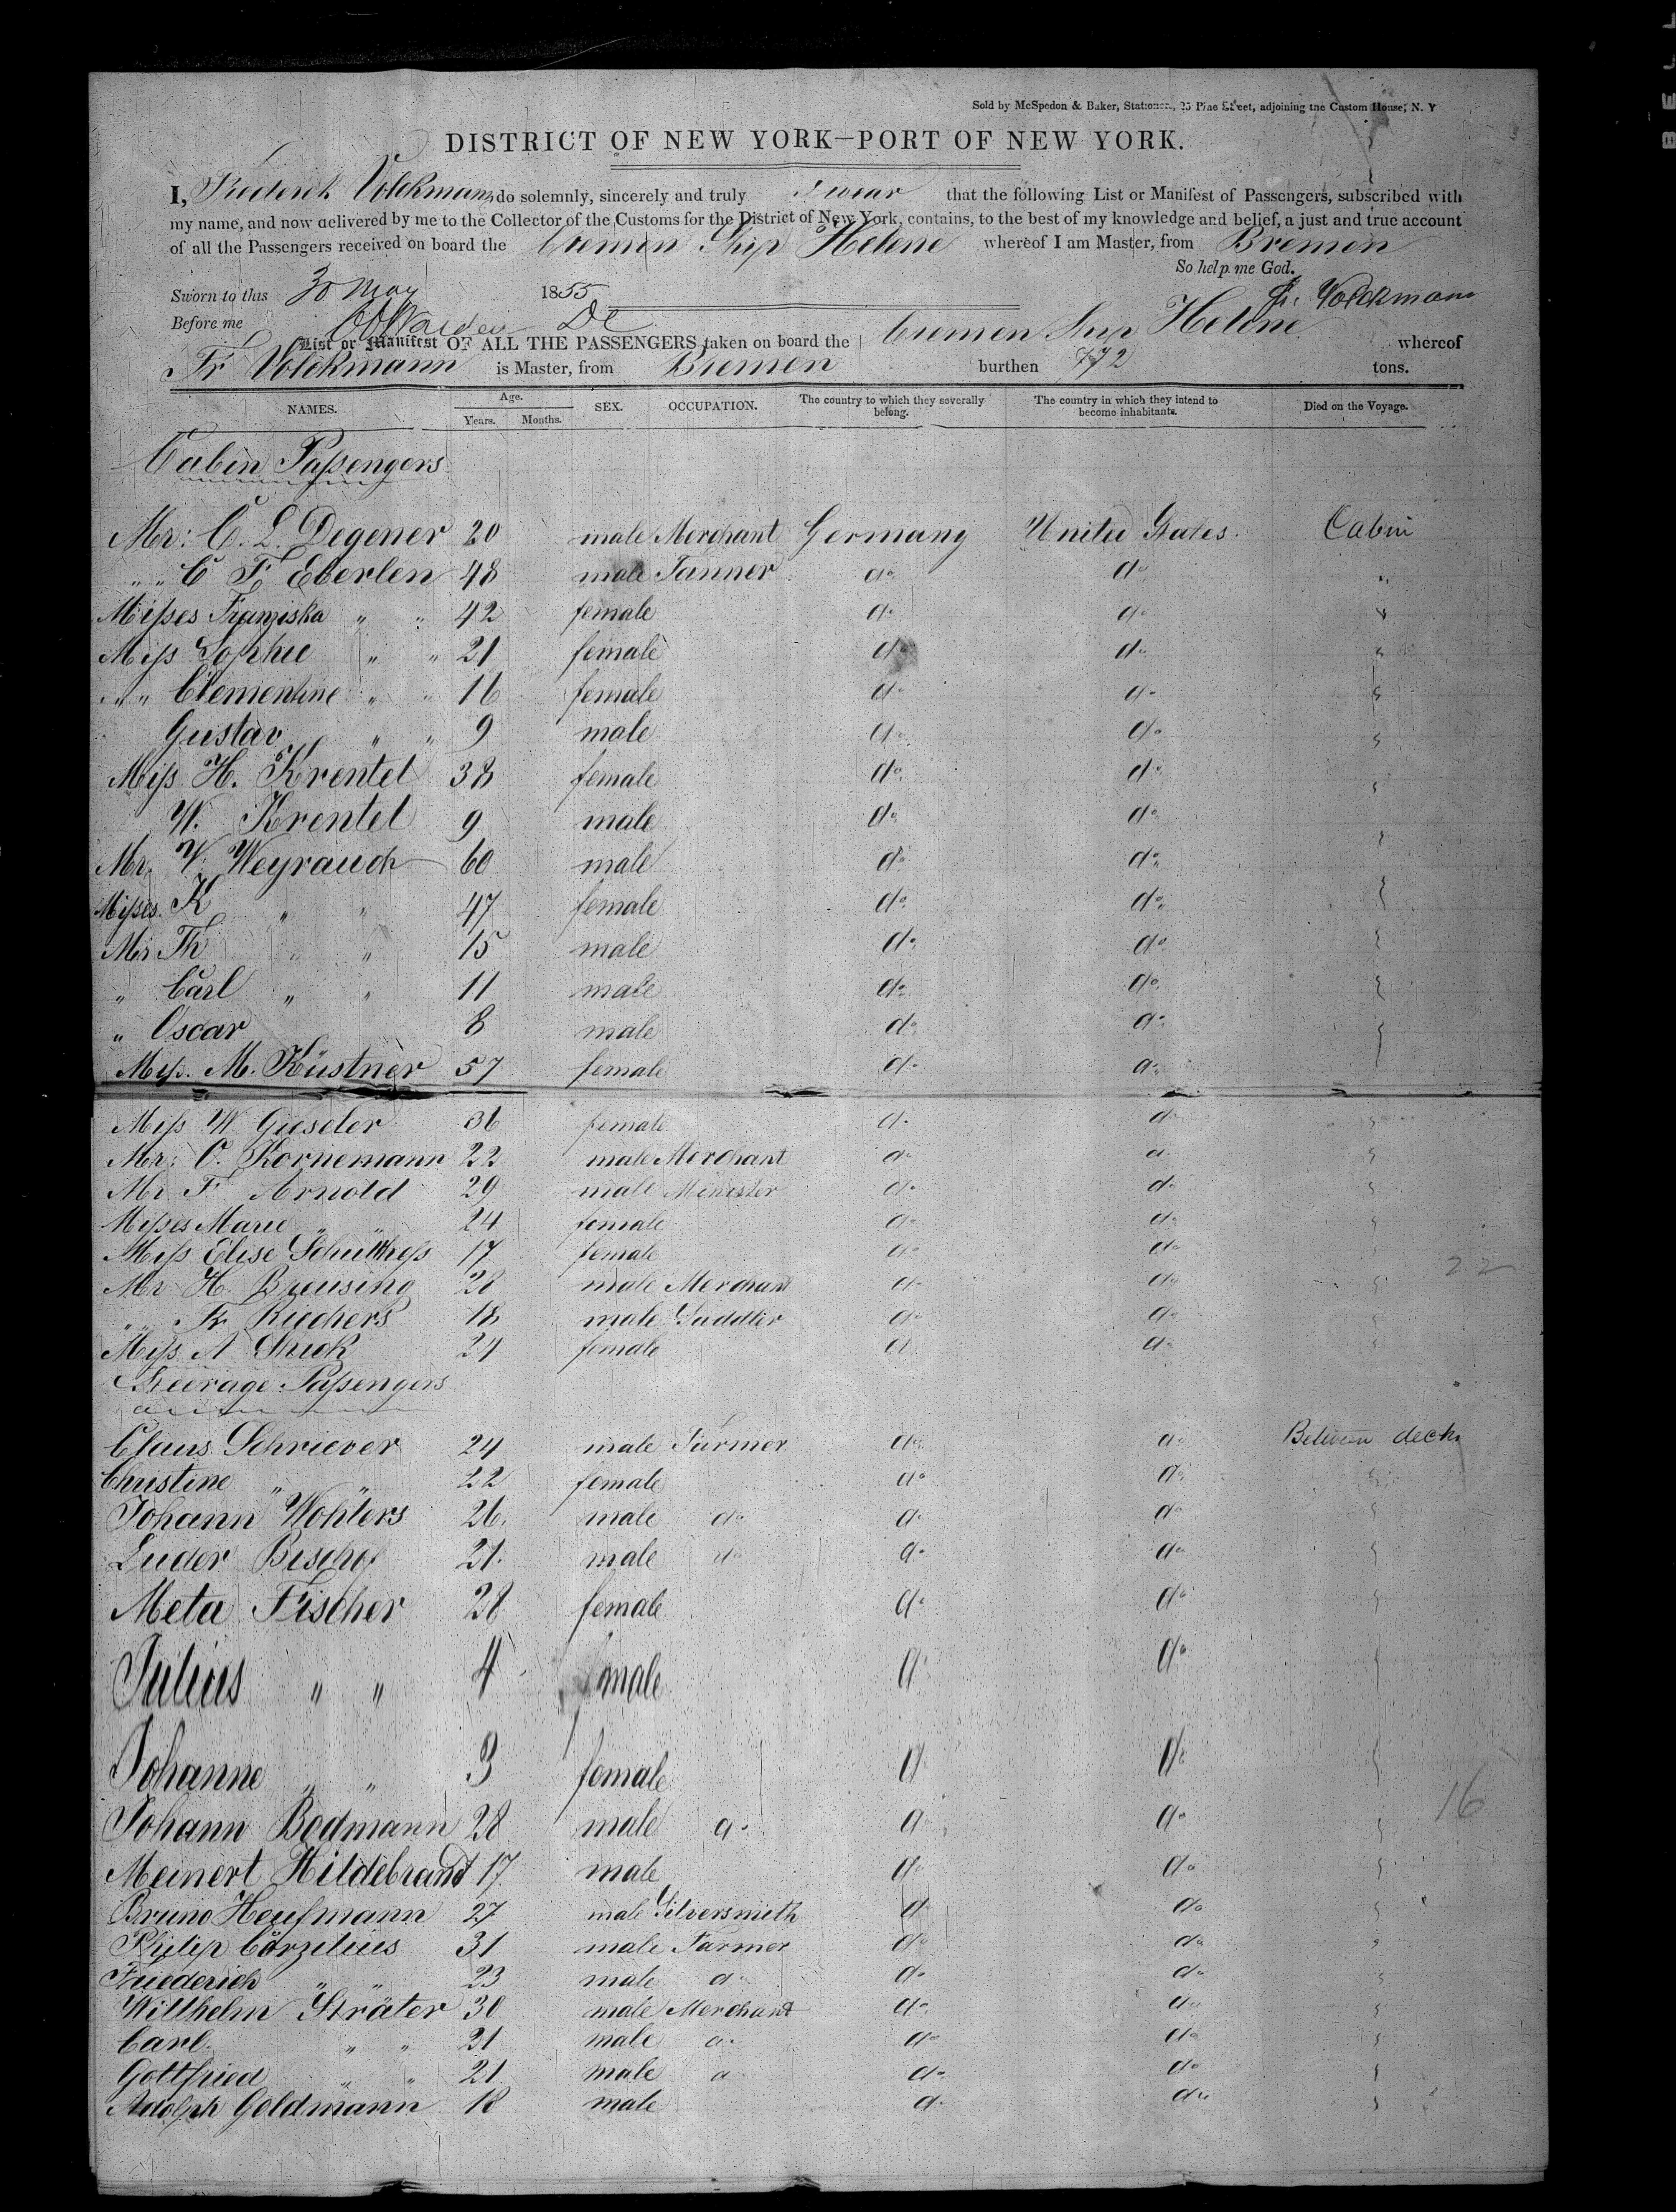 Sold by McSpedon & Baker, Stationers, 25 Pine Street, adjoining the Custom House, N. Y
DISTRICT OF NEW YORK—PORT OF NEW YORK.
I, Frederik Volckmann, do solemnly, sincerely and truly swear that the following List or Manifest of Passengers, subscribed with
my name, and now delivered by me to the Collector of the Customs for the District of New York, contains, to the best of my knowledge and belief, a just and true account
of all the Passengers received on board the Bremen Ship Helene whereof I am Master, from Bremen
So help me God.
Sworn to this 30 May 1855 Fr. Volckmann
Before me
List or Manifest OF ALL THE PASSENGERS taken on board the Bremen Ship Helene whereof
Fr Volckmann is Master, from Bremen burthen 772 tons.
NAMES. Age. Years. Months. SEX. OCCUPATION. The country to which they severally belong. The country in which they intend to become inhabitants. Died on the Voyage.
Cabin Passengers
Mr: C. L. Degener 20 male Merchant Germany United States. Cabin
" " C F Eberlen 48 male Tanner do do "
Misses Franziska " " 42 female do do "
Miss Sophie " " 21 female do do "
" " Clementine " " 16 female do do "
Gustav " " 9 male do do "
Miss H. Krentel 38 female do do "
W. Krentel 9 male do do "
Mr. V. Weyrauch 60 male do do "
Misses K " " 47 female do do "
Mr Th " " 15 male do do "
" Carl " " 11 male do do "
" Oscar 8 male do do "
Miss. M. Küstner 57 female do do
Miss W Gieseler 36 female do do "
Mr: O. Kornemann 22 male Merchant do do "
Mr F Arnold 29 male Minister do do "
Misses Marie " " 24 female do do "
Miss Elise Schulthess 17 female do do "
Mr H. Breusing 28 male Merchant do do " 22
" " Fr Riechers 18 male Saddler do do "
Miss A Stuck 24 female do do "
Steerage Passengers
Claus Schriever 24 male Farmer do do Between decks
Christine " " 22 female do do "
Johann Wohlers 26. male do do do "
Luder Bischof 21. male do do do "
Meta Fischer 28 female do do "
Julius " " 4 male do do "
Johanne " " 3 female do do "
Johann Bodmann 28 male do do do " 16
Meinert Hildebrand 17 male do do "
Bruno Heufmann 27 male Silversmith do do "
Philip Corzelius 31 male Farmer do do "
Friederich " " 23 male do do do "
Willhelm Sträter 30 male Merchant do do "
Carl " " 21 male do do do "
Gottfried " " 21 male do do do "
Adolph Goldmann 18 male do do "